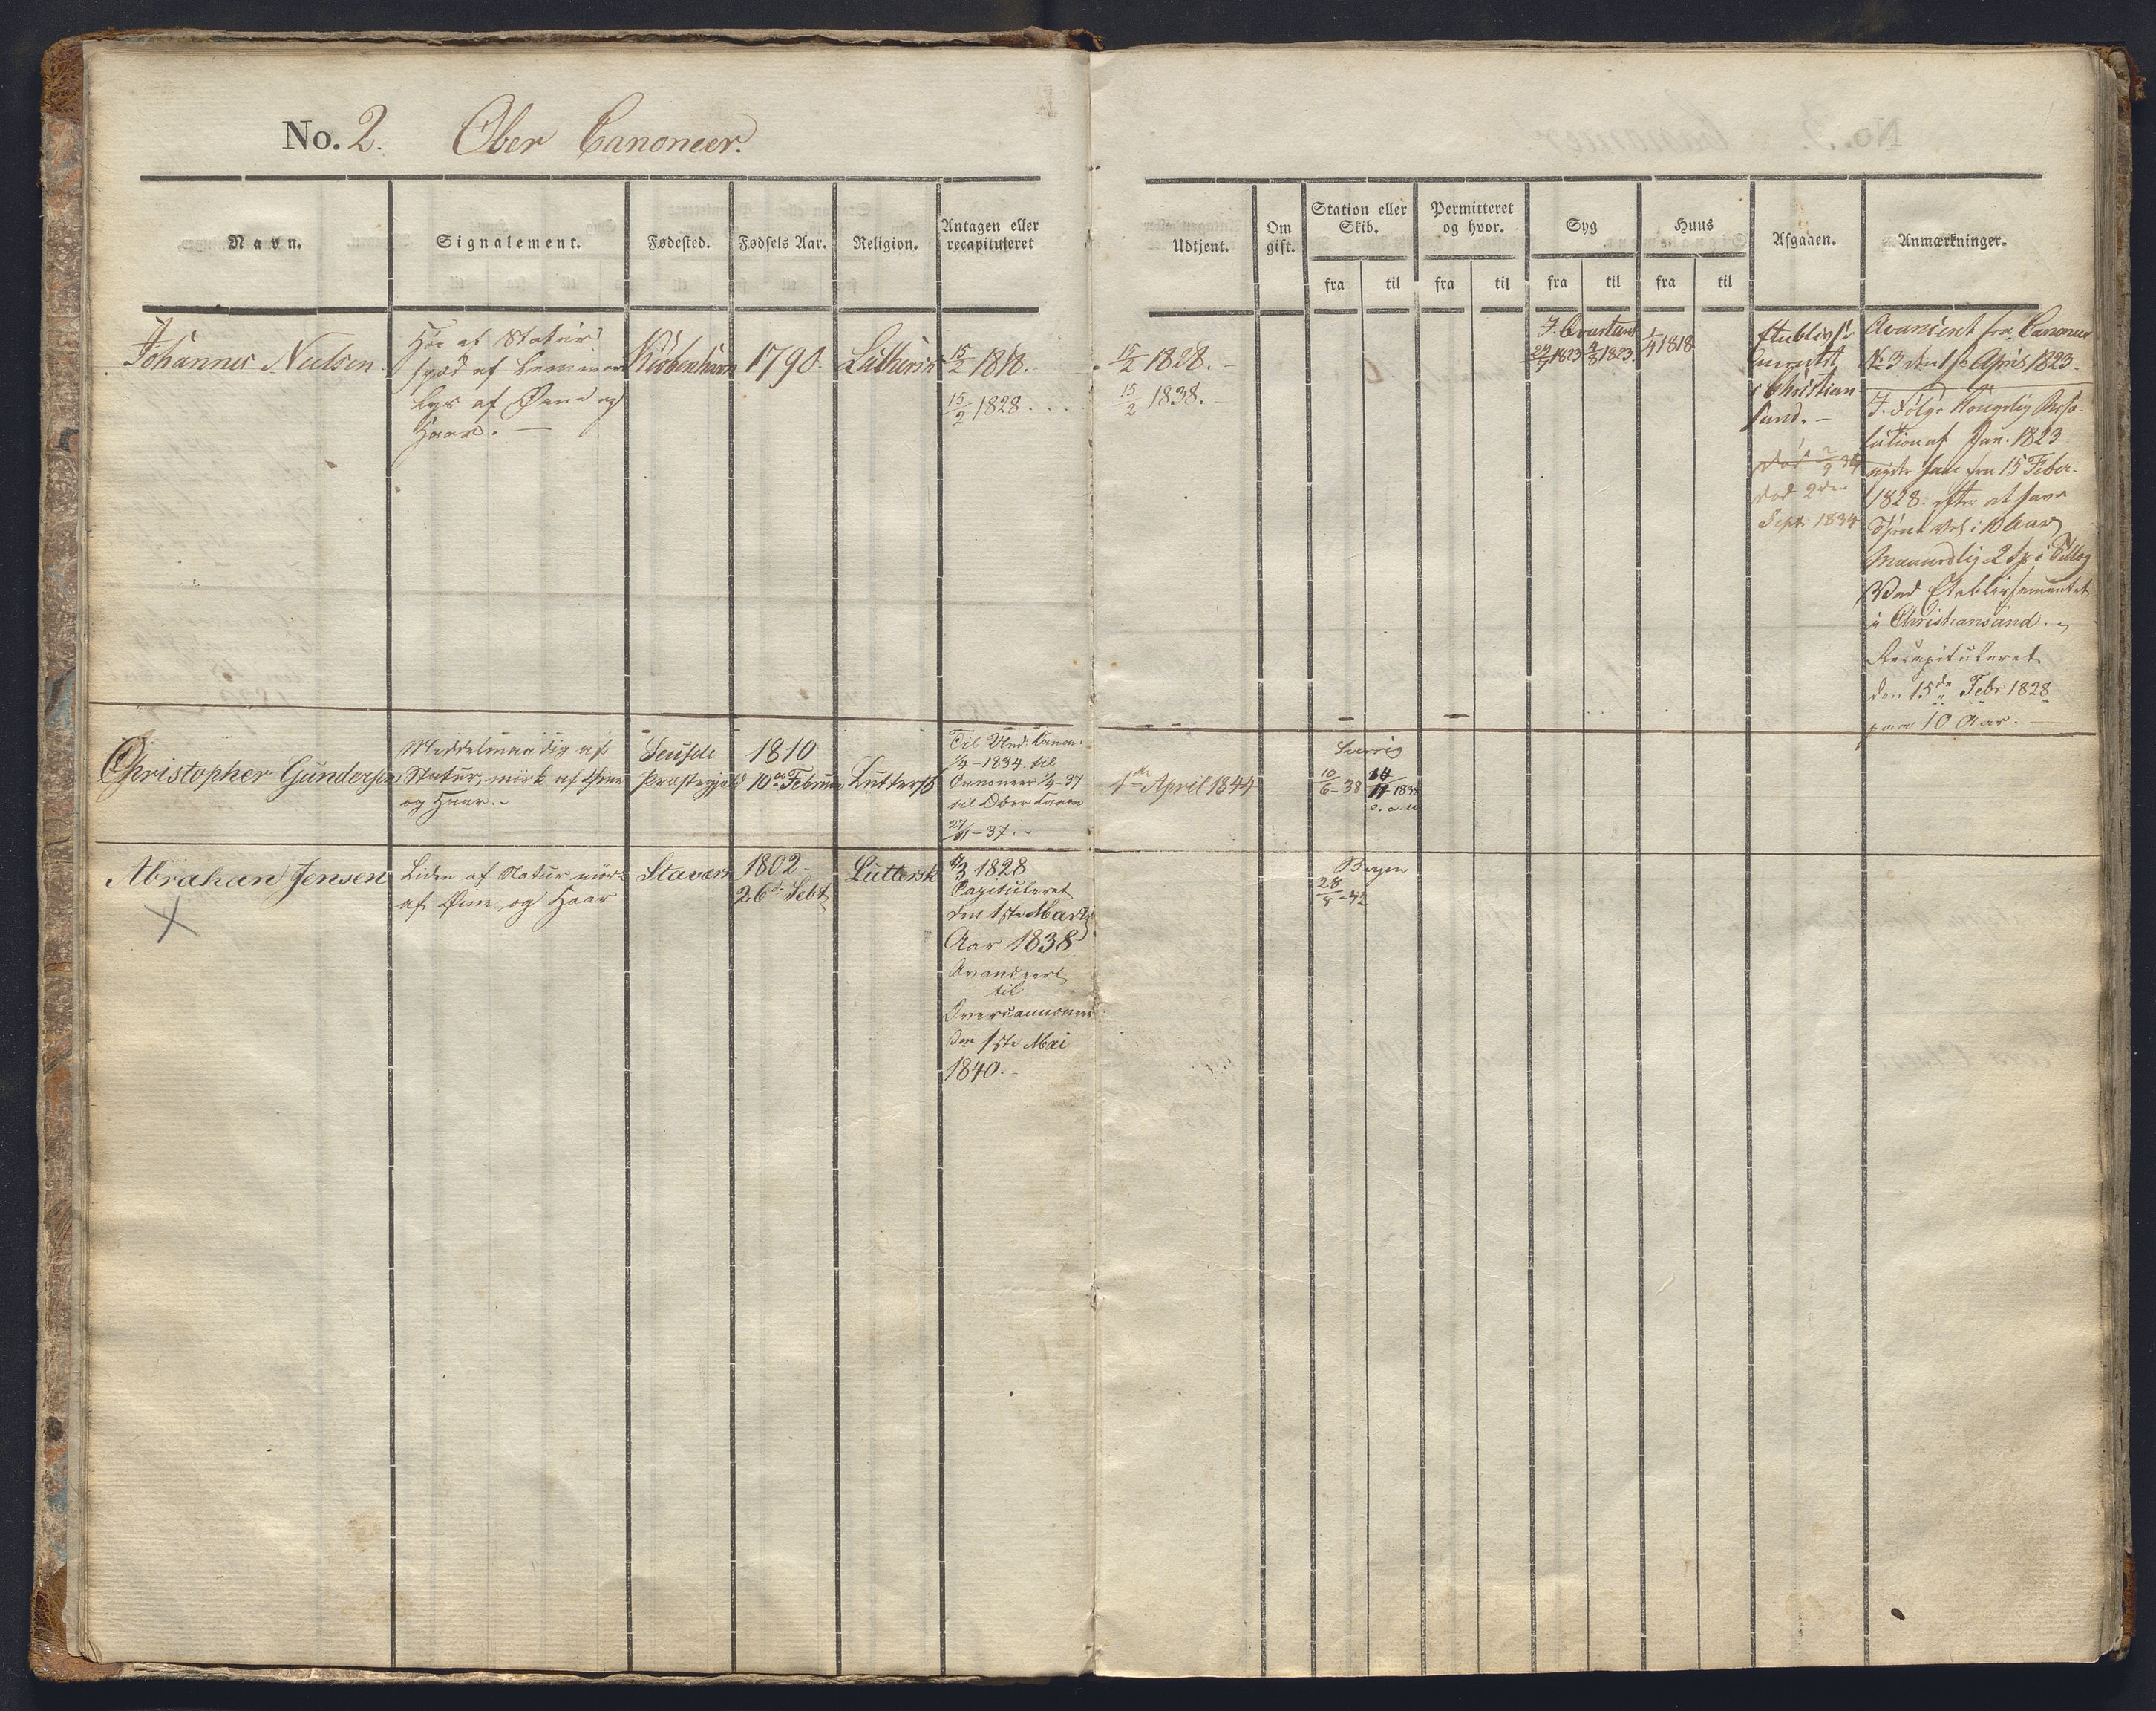 No. 2. Ober Canoneer.
Navn.
Signalement.
Fødested.
Fødsels Aar.
Religion.
Antagen eller
recapituleret
Udtjent.
Om
gift.
Station eller
Skib.
Permitteret
og hvor.
Syg
Huus
Afgaaen.
Anmærkninger.
fra til fra til fra til fra til
Johannes Nielsen
Høi af Statur
spæd af Lemmer
lys af Øine og
Haar. —
Kiøbenhavn
1790.
Luthersk
15/2 1818.
15/2 1828 . . .
15/2 1828. —
15/2 1838. —
1823
1823.
1/4 1818
Etablisse
mentet
i Christian
sand. —
Død 2/9 34
død 2den
Sept. 1834
Avanceret fra Canoneer
No 3 den 1ste April 1823.
I Følge Kongelig Reso-
lution af Jan. 1823
nyder han fra 15 Febr.
1828. efter at have
tjent vel i 10 Aar
Maanedlig 2 Sp. i Tillæg
Ved Etablissementet
i Christiansand.
Recapituleret
den 15de Febr 1828
paa 10 Aar. —
Christopher Gundersen
Middelmaadig af
Statur, mørk af Øine
og Haar. —
Præstegjeld
1810
10de Februar
Luttersk
Til Und. Canon.
1/4 - 1834 til
Canoneer 1/4 - 37
til Ober Canon
27/11 - 37. —
1ste April 1844
Sverrig
10/6 - 38
14/11 1838
Abraham Jensen
Liden af Statur mørk
af Øine og Haar
Staværn
1802
26de Sebt.
Luttersk
1/3 1828
Capituleret
den 1ste Marts
Aar 1838
Avanceret
til
Overcannoneer
den 1ste Mai
1840. —
Bergen
28/8 - 42